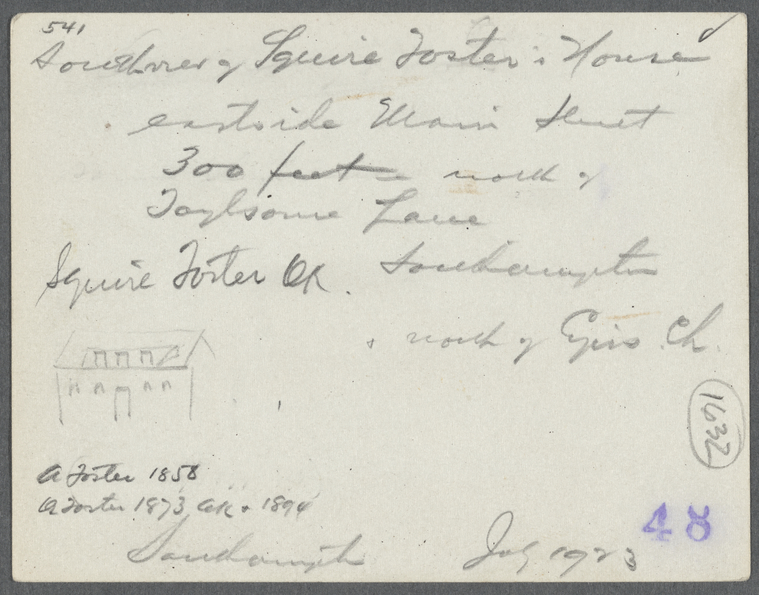 541
Southrner of Squire Foster's House
eastside Main Street
300 feet north of
Toylsome Lane
Squire Foster OK. Southampton
north of Epis. Ch.
1632
A Foster 1858
A Foster 1873, OK 1894
48
Southampton July 1923